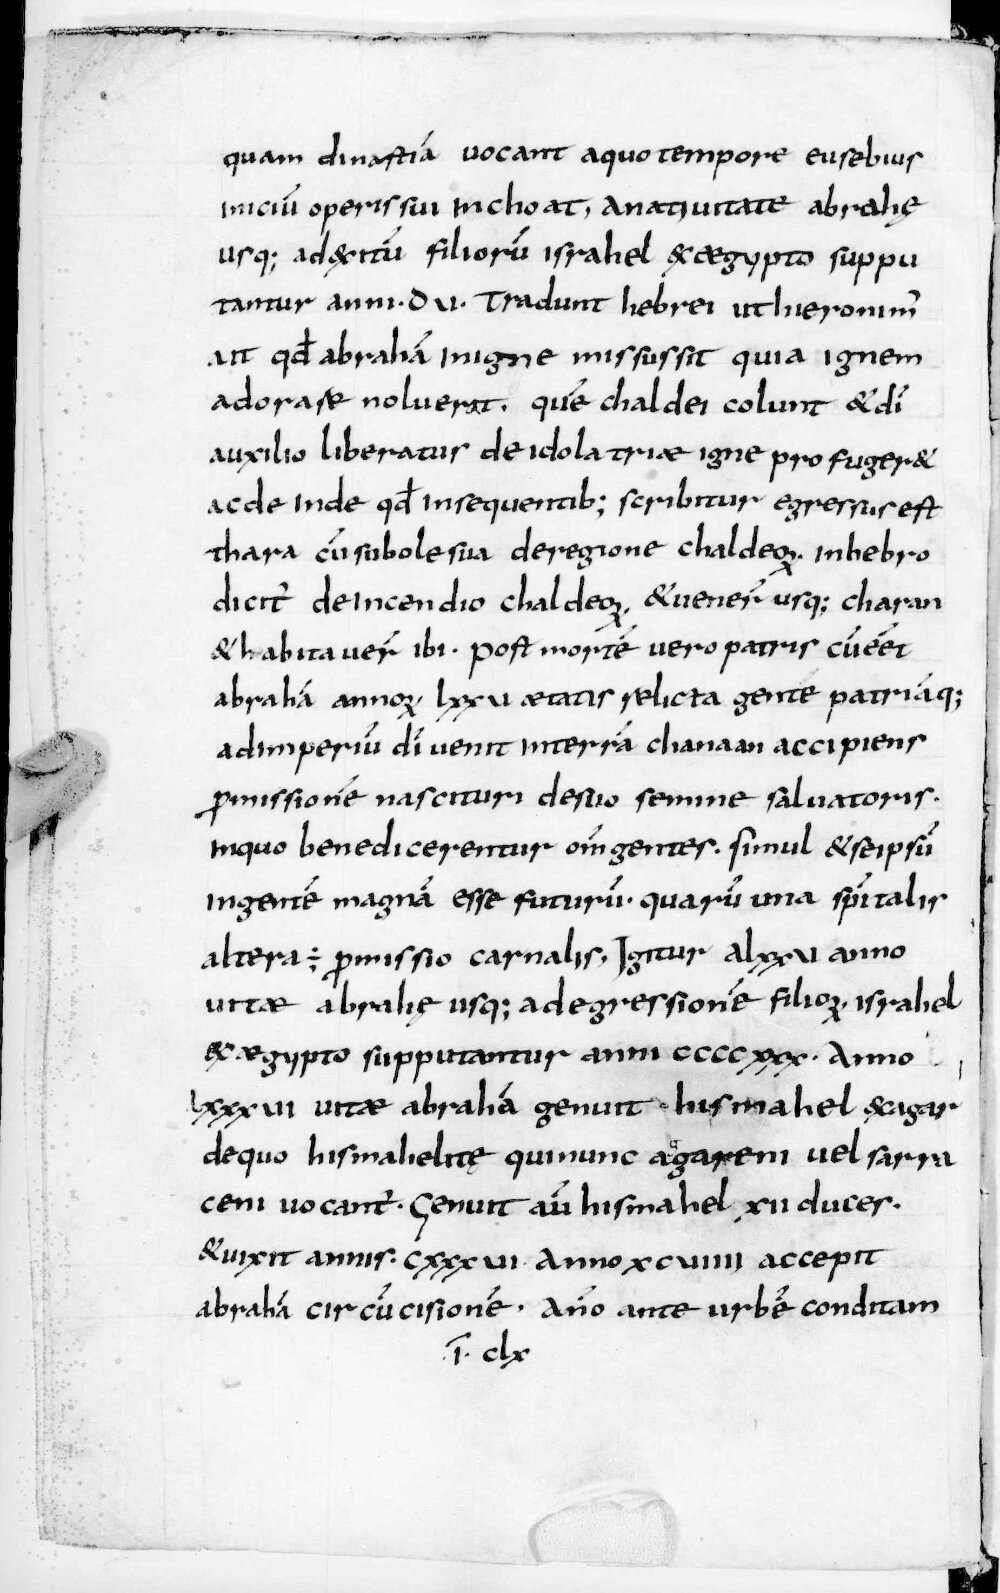 quam dinastiā uocant aquo tempore eusebius
iniciū operis sui inchoat, Anatiuitate abrahę
usq; ad&xitū filiorū israhel &xægypto suppu
tantur anni. DVI. Tradunt hebrei ut hieronim̄
ait qđ abrahā inigne missus sit quia ignem
adorare noluerit. quē chaldei colunt & dī
auxilio liberatus de idolatriæ igne profuger&
acde inde qđ insequentib; scribitur egressus est
thara cū subole sua deregione chaldeoꝝ. inhebro
dicit̄ deincendio chaldeoꝝ. & uener̄ usq; charan
& habitauer̄ ibi. post mortē uero patris cū eēt
abrahā annoꝝ lxxv ætatis relicta gente patriāq;
adimperiū dī uenit interrā chanaan accipiens
ꝓmissionē nascituri desuo semine saluatoris.
inquo benedicerentur om̄s gentes. simul & seipsū
ingentē magnā esse futurū. quarū una sp̄italis
altera ÷ ꝓmissio carnalis, Igitur alxxvi anno
uitæ abrahę usq; adegressionē filioꝝ israhel
&xægypto supputantur anni ccccxxx. Anno
lxxxvi uitæ abrahā genuit hismahel &xagar
dequo hismahelitę quinunc agareni uel sarra
ceni uocant̄. Genuit aū hismahel xii duces.
& uixit annis. cxxxvii Anno xcviiii accepit
abrahā circūcisionē. An̄o ante urbē conditam
Ī. clx